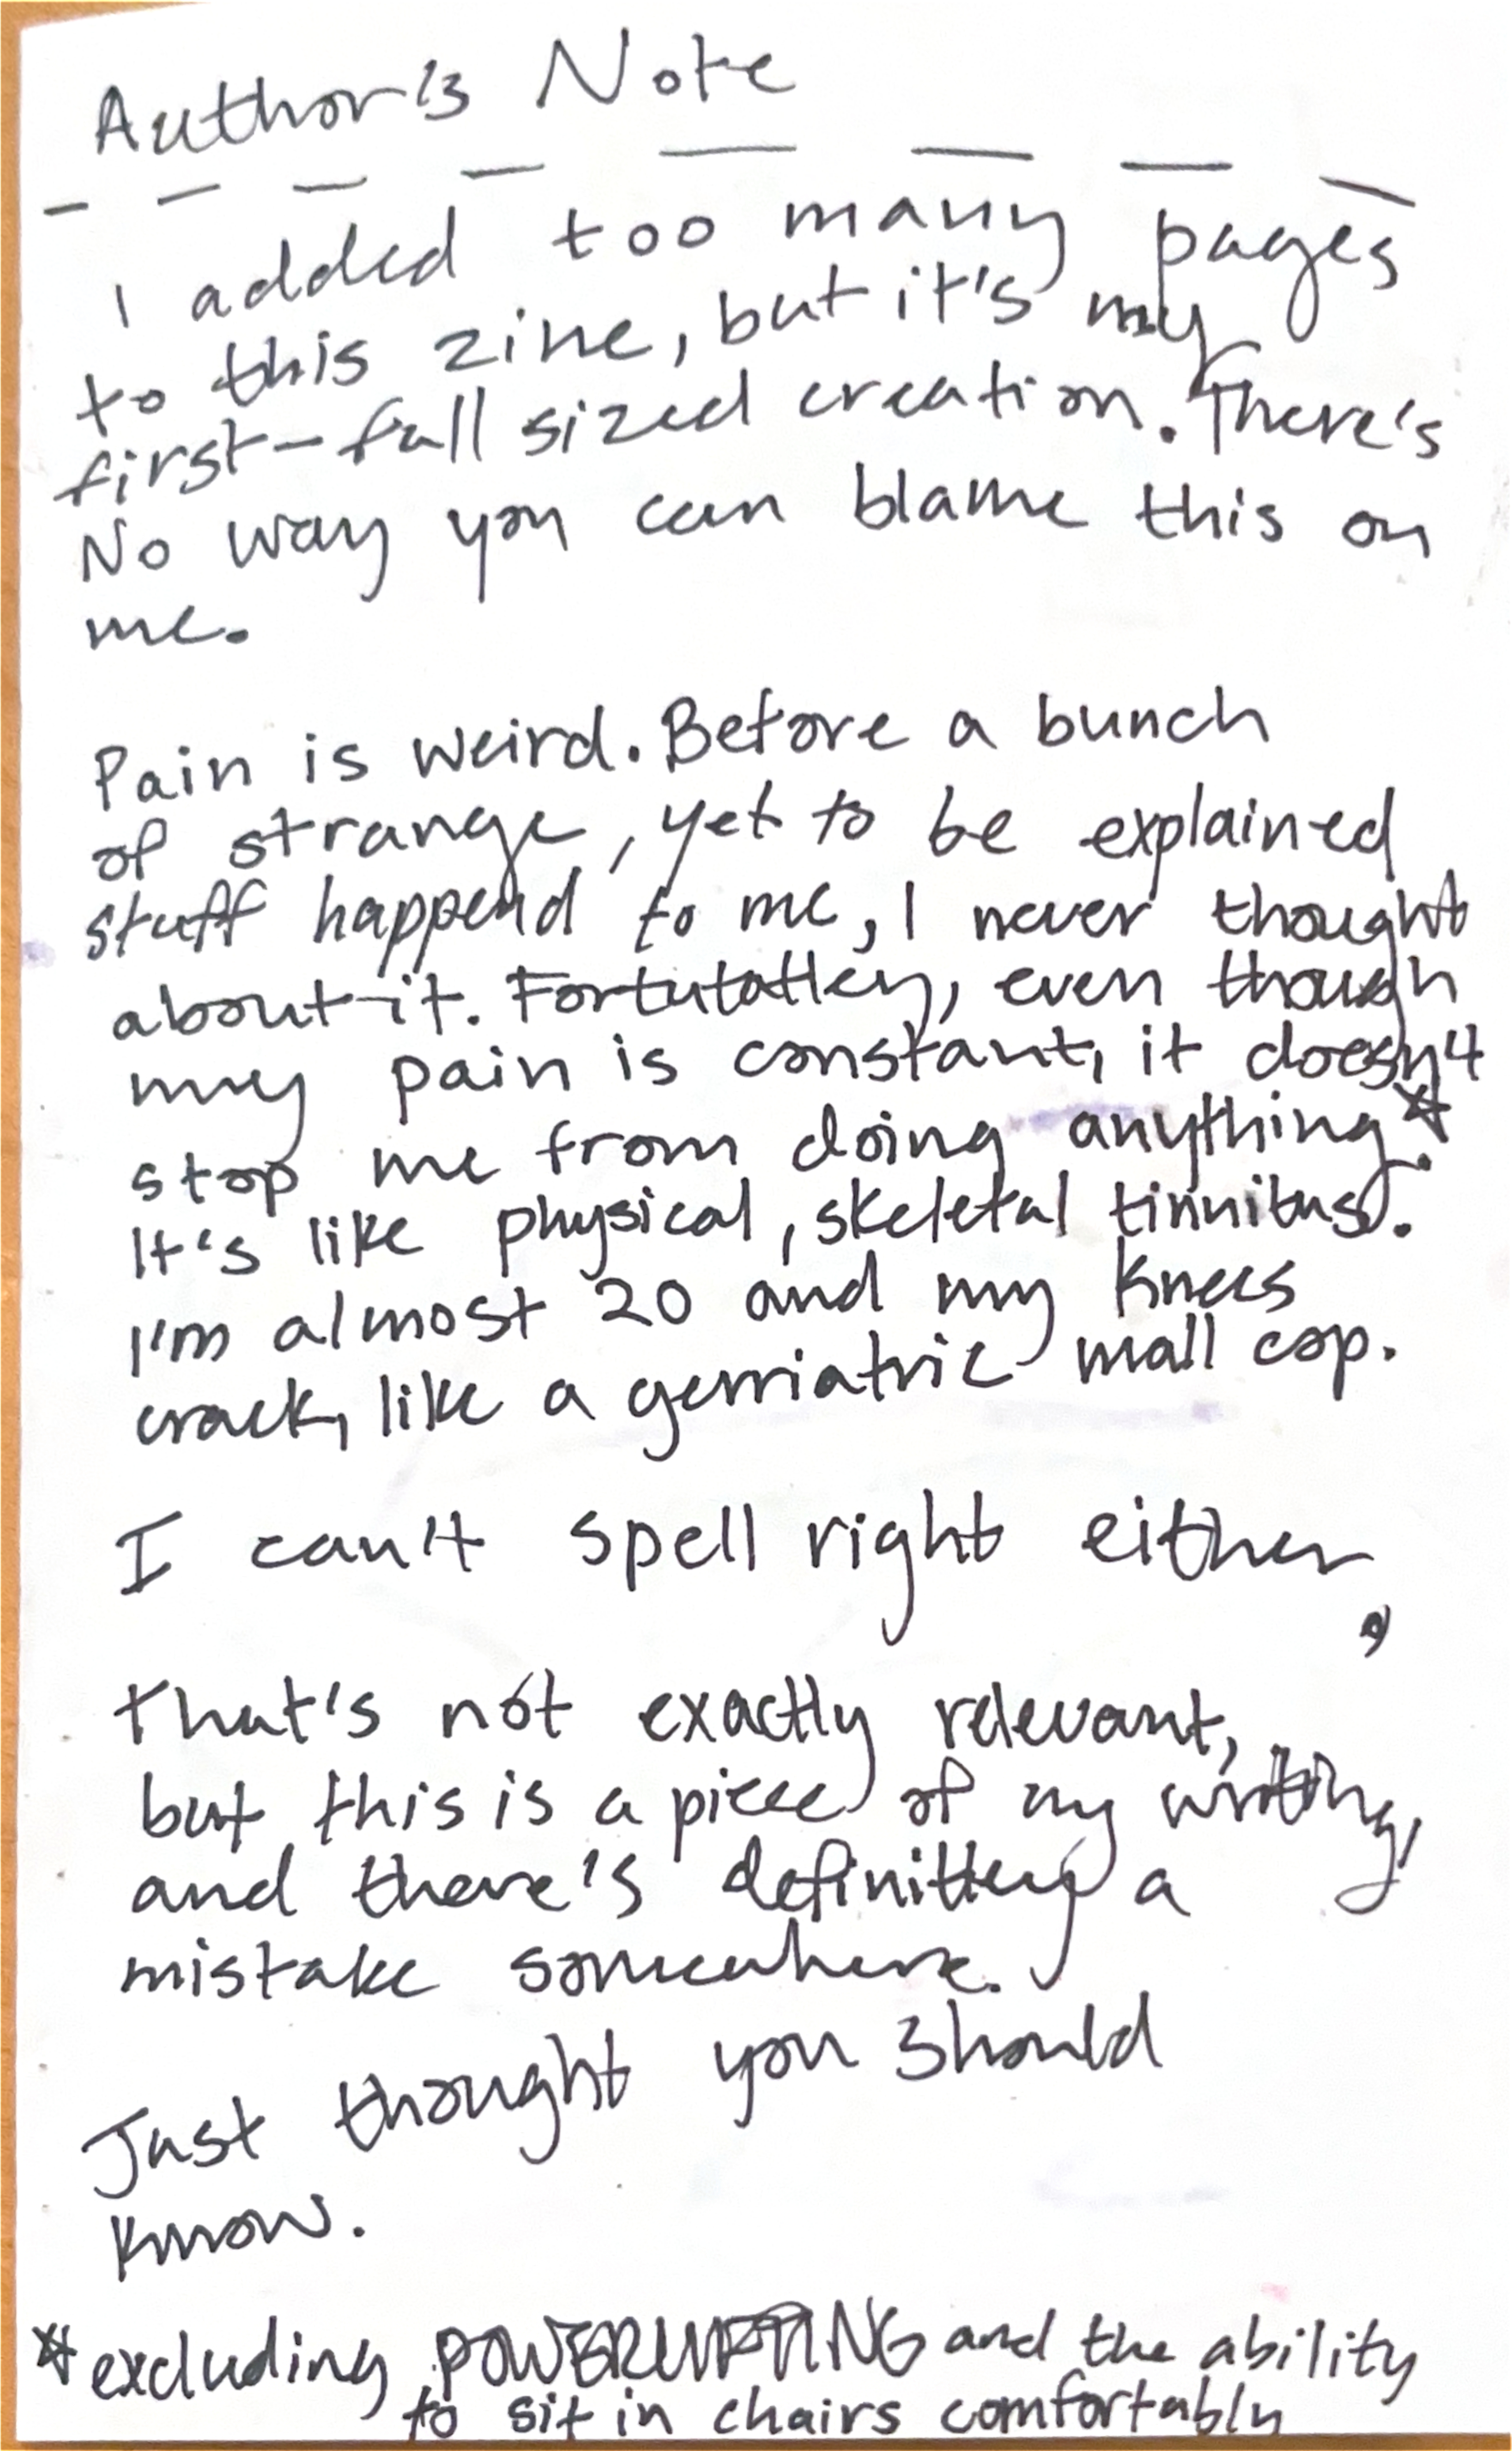 Author's Note
I added too many pages
to this zine, but it's my
first-full sized creation. There's
No way you can blame this on
me.
Pain is weird. Before a bunch
of strange, yet to be explained
stuff happend to me, I never thought
about it. Fortutatley, even though
my pain is constant, it doesn't
stop me from doing anything*.
It's like physical, skeletal tinnitus.
I'm almost 20 and my knees
crack, like a gerriatric mall cop.
I can't spell right either,
that's not exactly relevant,
but this is a piece of my writing,
and there's definitley a
mistake somewhere.
Just thought you should
know.
*excluding POWERLIFTING and the ability
to sit in chairs comfortably